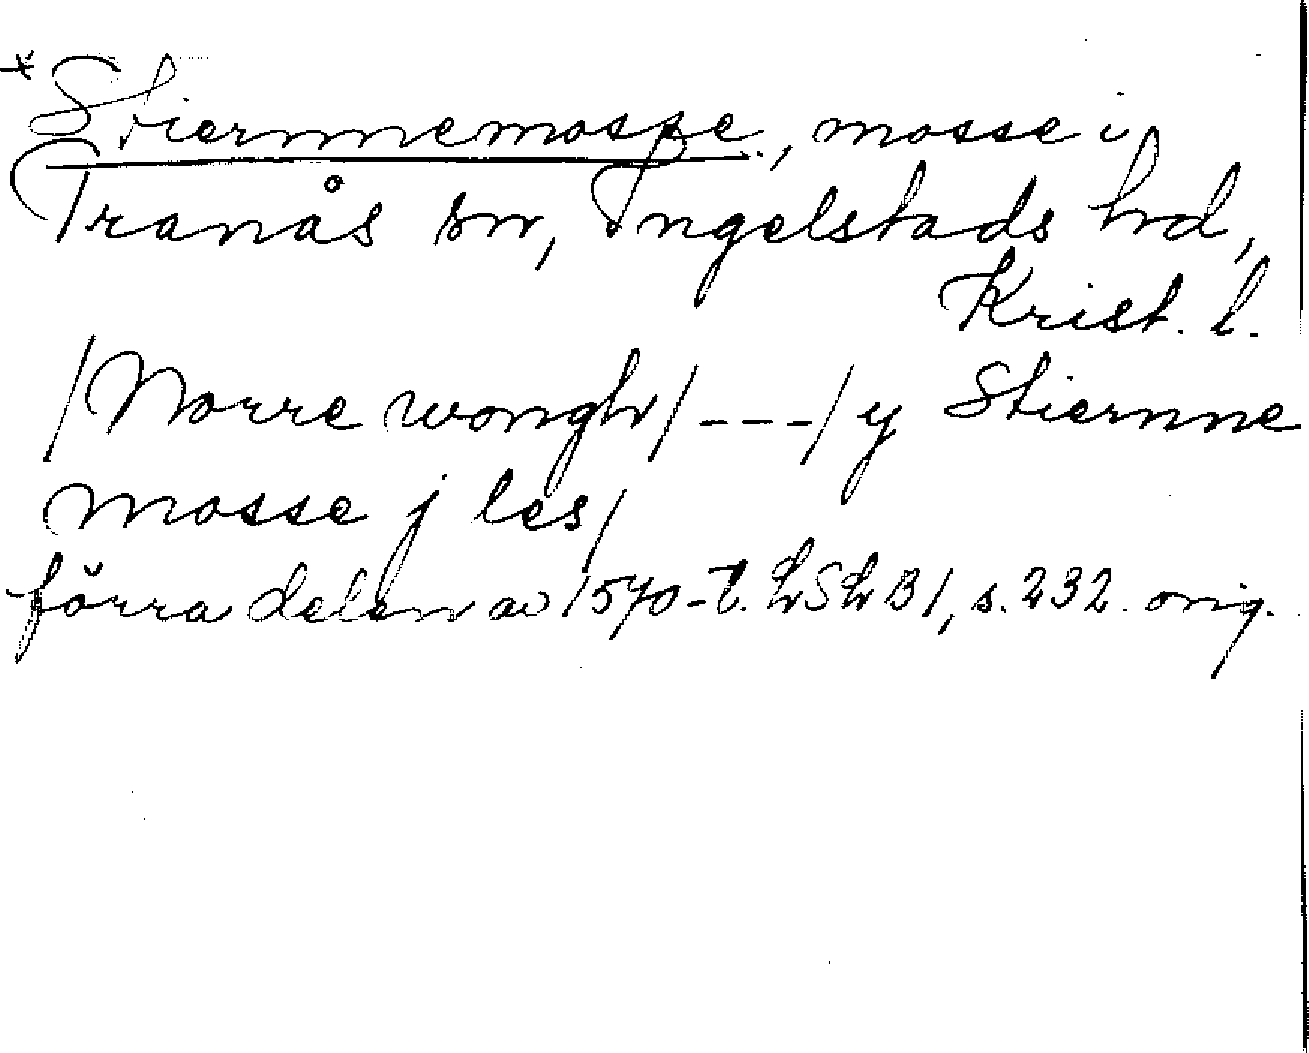 * Stiernnemosse, mosse i
Tranås sn, Ingelstads hd,
Krist. l.
/Norre wongh/ --- / y Stiernne
mosse j les/
förra delen av 1570-t. LSLB1, s. 232. orig.